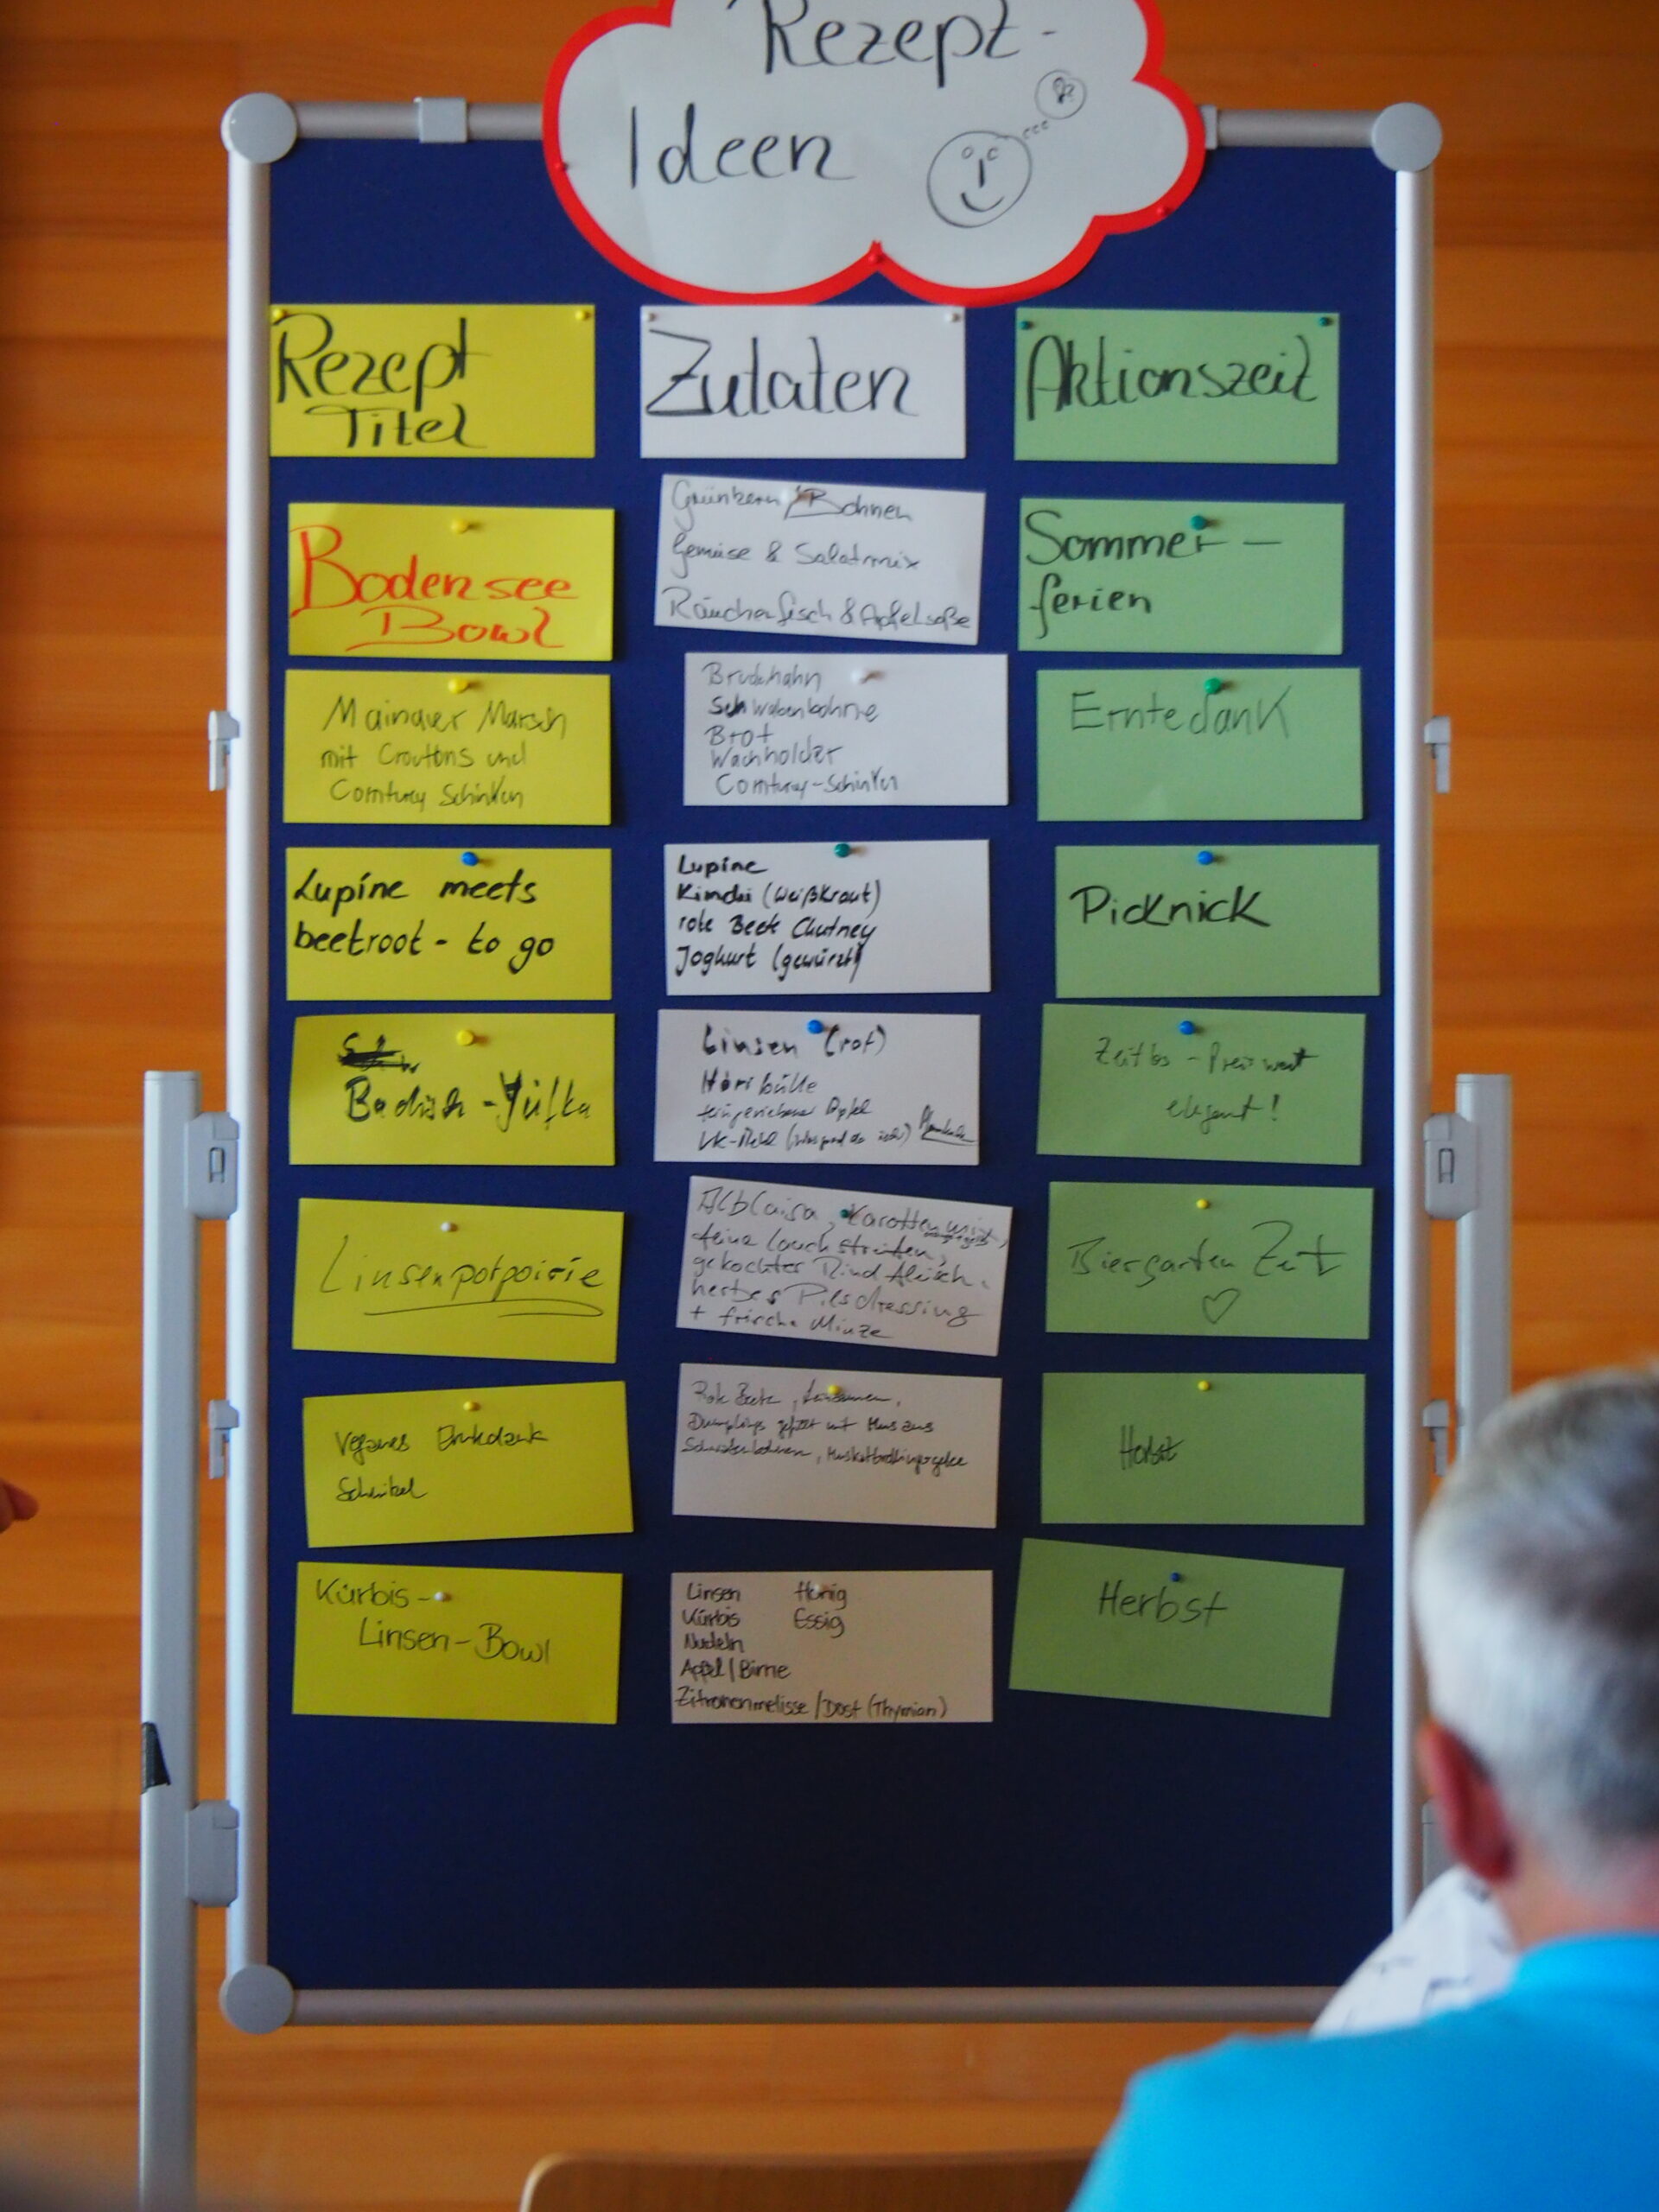 Rezept-
Ideen
Rezept
Titel
Zutaten
Aktionszeit
Bodensee
Bowl
Grünkern / Bohnen
Gemüse & Salatmix
Räucherfisch & Apfelsoße
Sommer-
ferien
Mainauer Marsch
mit Croutons und
Comturey Schinken
Bruderhahn
Schwabenbohne
Brot
Wachholder
Comturey-Schinken
Erntedank
Lupine meets
beetroot - to go
Lupine
(Weißkraut)
rote Beete Chutney
Joghurt (gewürzt)
Picknick
Badisch - Yufka
Linsen (rot)
Höri bülle
feingeriebener Apfel
Zeitlos - Preiswert
elegant!
Linsenpotpoirie
Alblaisa, Karottenmix,
feine Lauchstreifen,
gekochtes Rindfleisch,
herbes Pilsdressing
+ frische Minze
Biergarten Zeit
Veganes Erntedank
Rote Beete, Leinsamen,
Dumplings gefüllt mit Mus aus
Schwabenbohnen, Muskattrollingergelee
Herbst
Kürbis-
Linsen-Bowl
Linsen Honig
Kürbis Essig
Nudeln
Apfel / Birne
Zitronenmelisse / Dost (Thymian)
Herbst